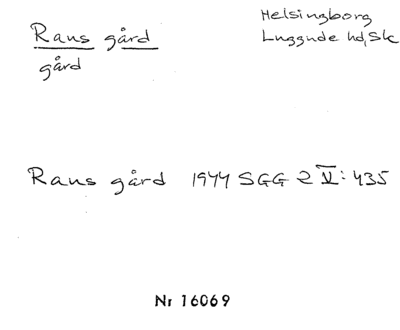 Rans gård
gård
Helsingborg
Luggude hd, Sk
Rans gård 1944 SGG 2 V: 435
Nr 16069